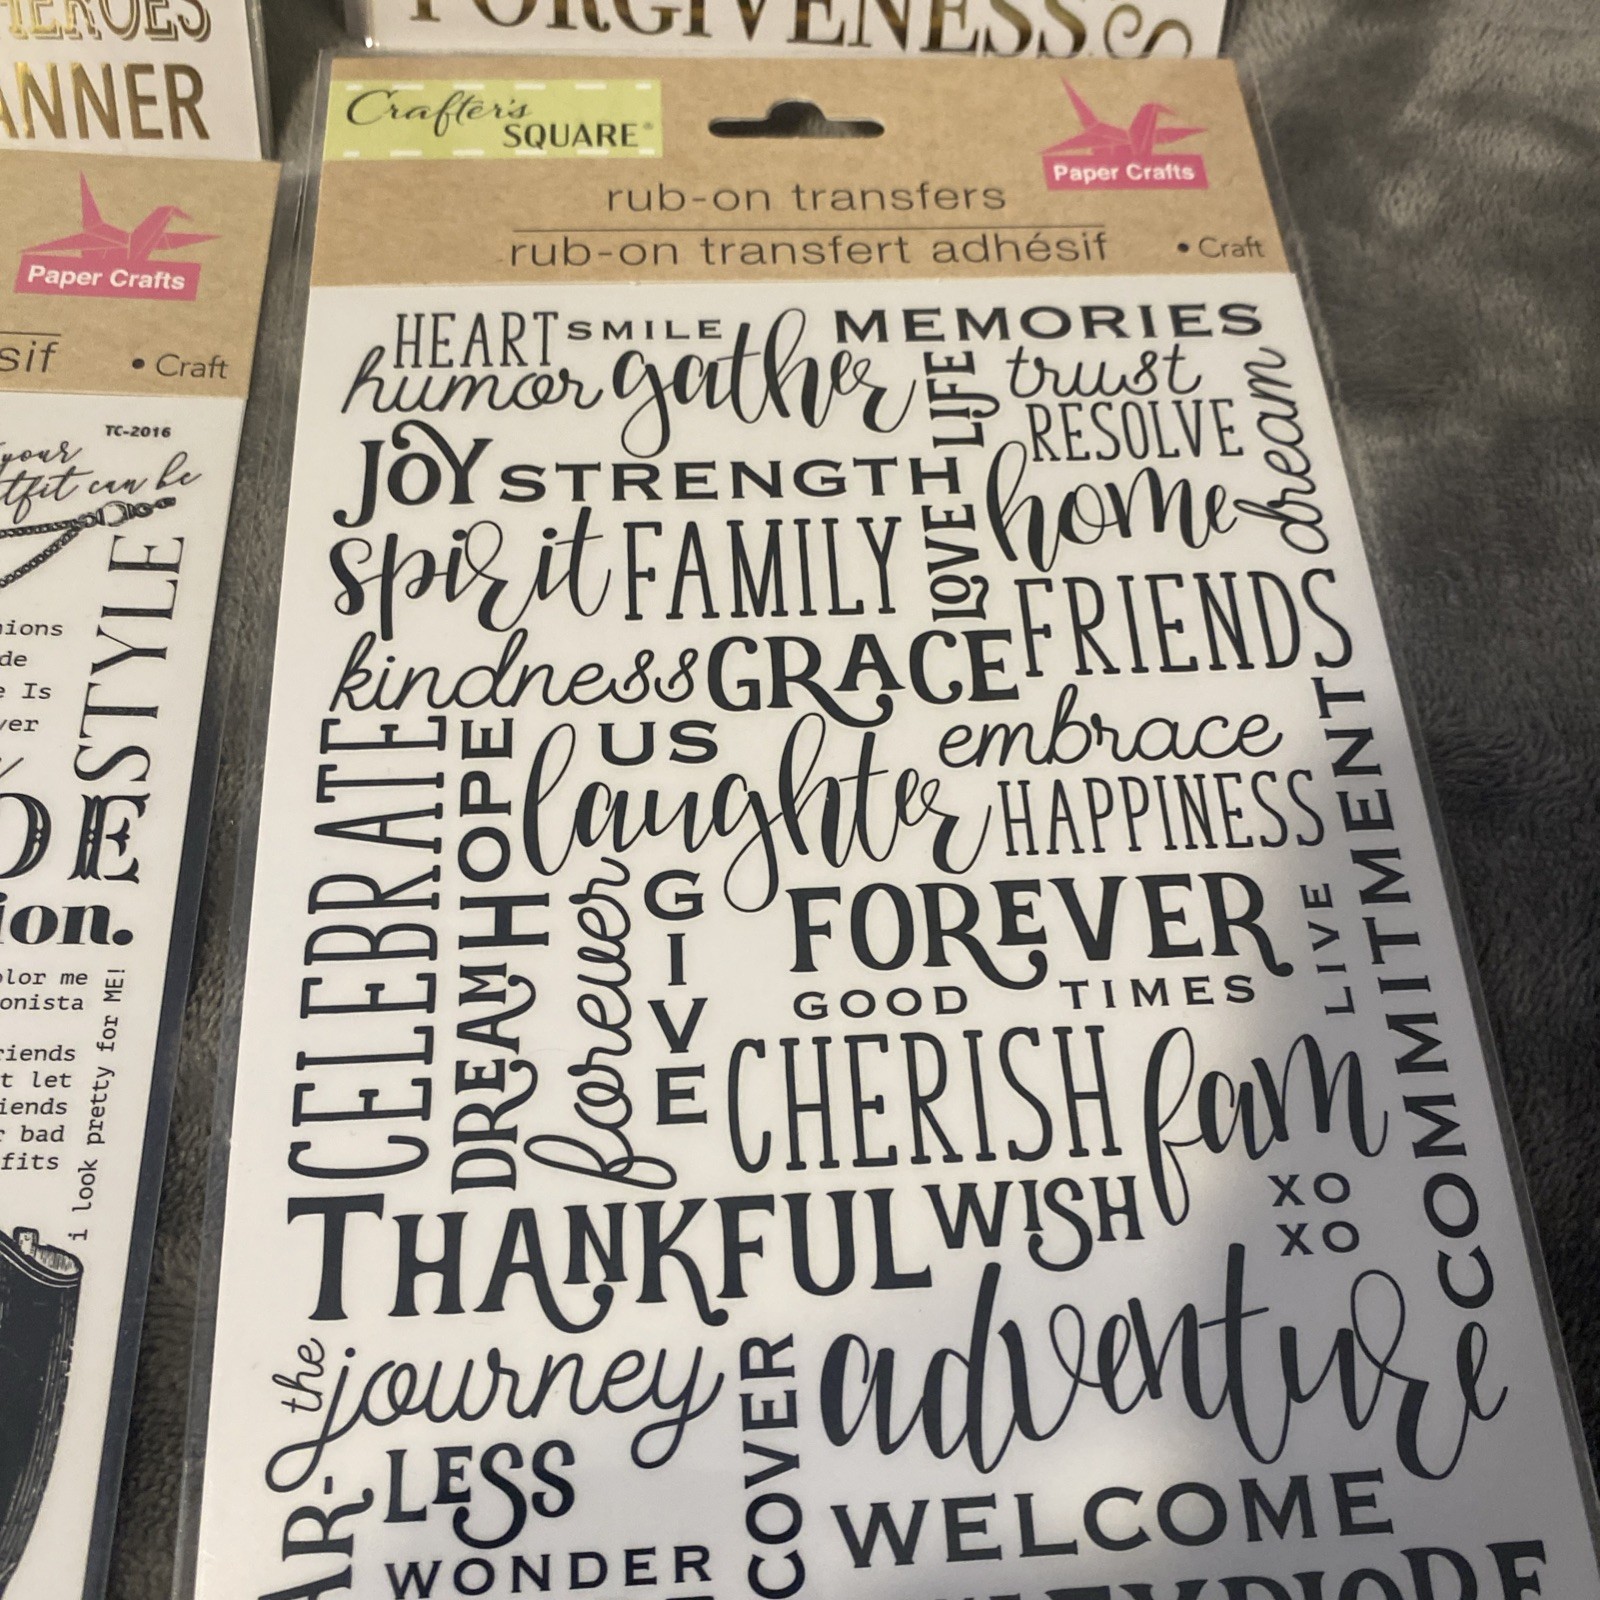 HEROES
ANNER
FORGIVENESS
Paper Crafts
sif
• Craft
TC-2016
your
tfit can be
STYLE
de
e Is
ver
ion.
olor me
onista
riends
t let
iends
r bad
fits
i look pretty for ME!
Crafter's
SQUARE®
Paper Crafts
rub-on transfers
rub-on transfert adhésif • Craft
HEART SMILE MEMORIES
humor gather LIFE trust
RESOLVE dream
JOY STRENGTH home
spirit FAMILY LOVE FRIENDS
kindness GRACE
CELEBRATE HOPE US embrace
laughter HAPPINESS COMMITMENT
DREAM forever GIVE FOREVER LIVE
GOOD TIMES
CHERISH fam
THANKFUL WISH XO
XO
the journey COVER adventure
AR-
LESS
WELCOME
WONDER